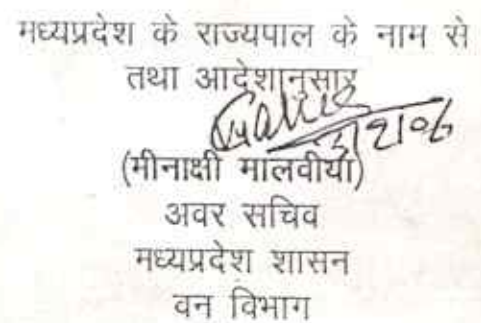 मध्यप्रदेश के राज्यपाल के नाम से
तथा आदेशानुसार
(मीनाक्षी मालवीया)
अवर सचिव
मध्यप्रदेश शासन
वन विभाग